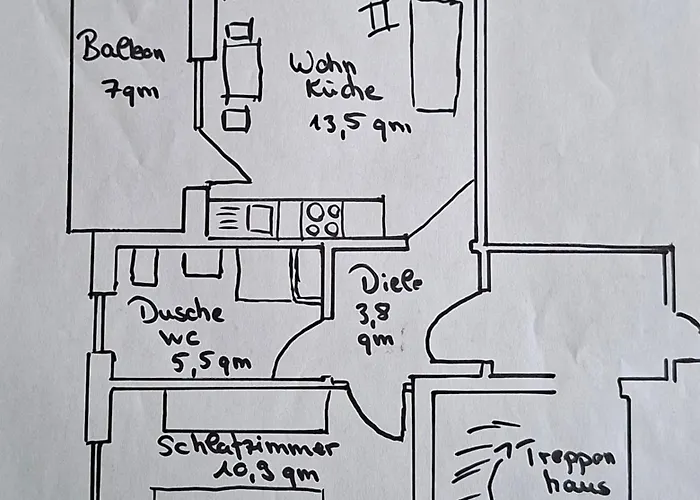 Balkon
7qm
Wohn
Küche
13,5 qm
Diele
3,8
qm
Dusche
WC
5,5 qm
Schlafzimmer
10,9 qm
Treppen
haus